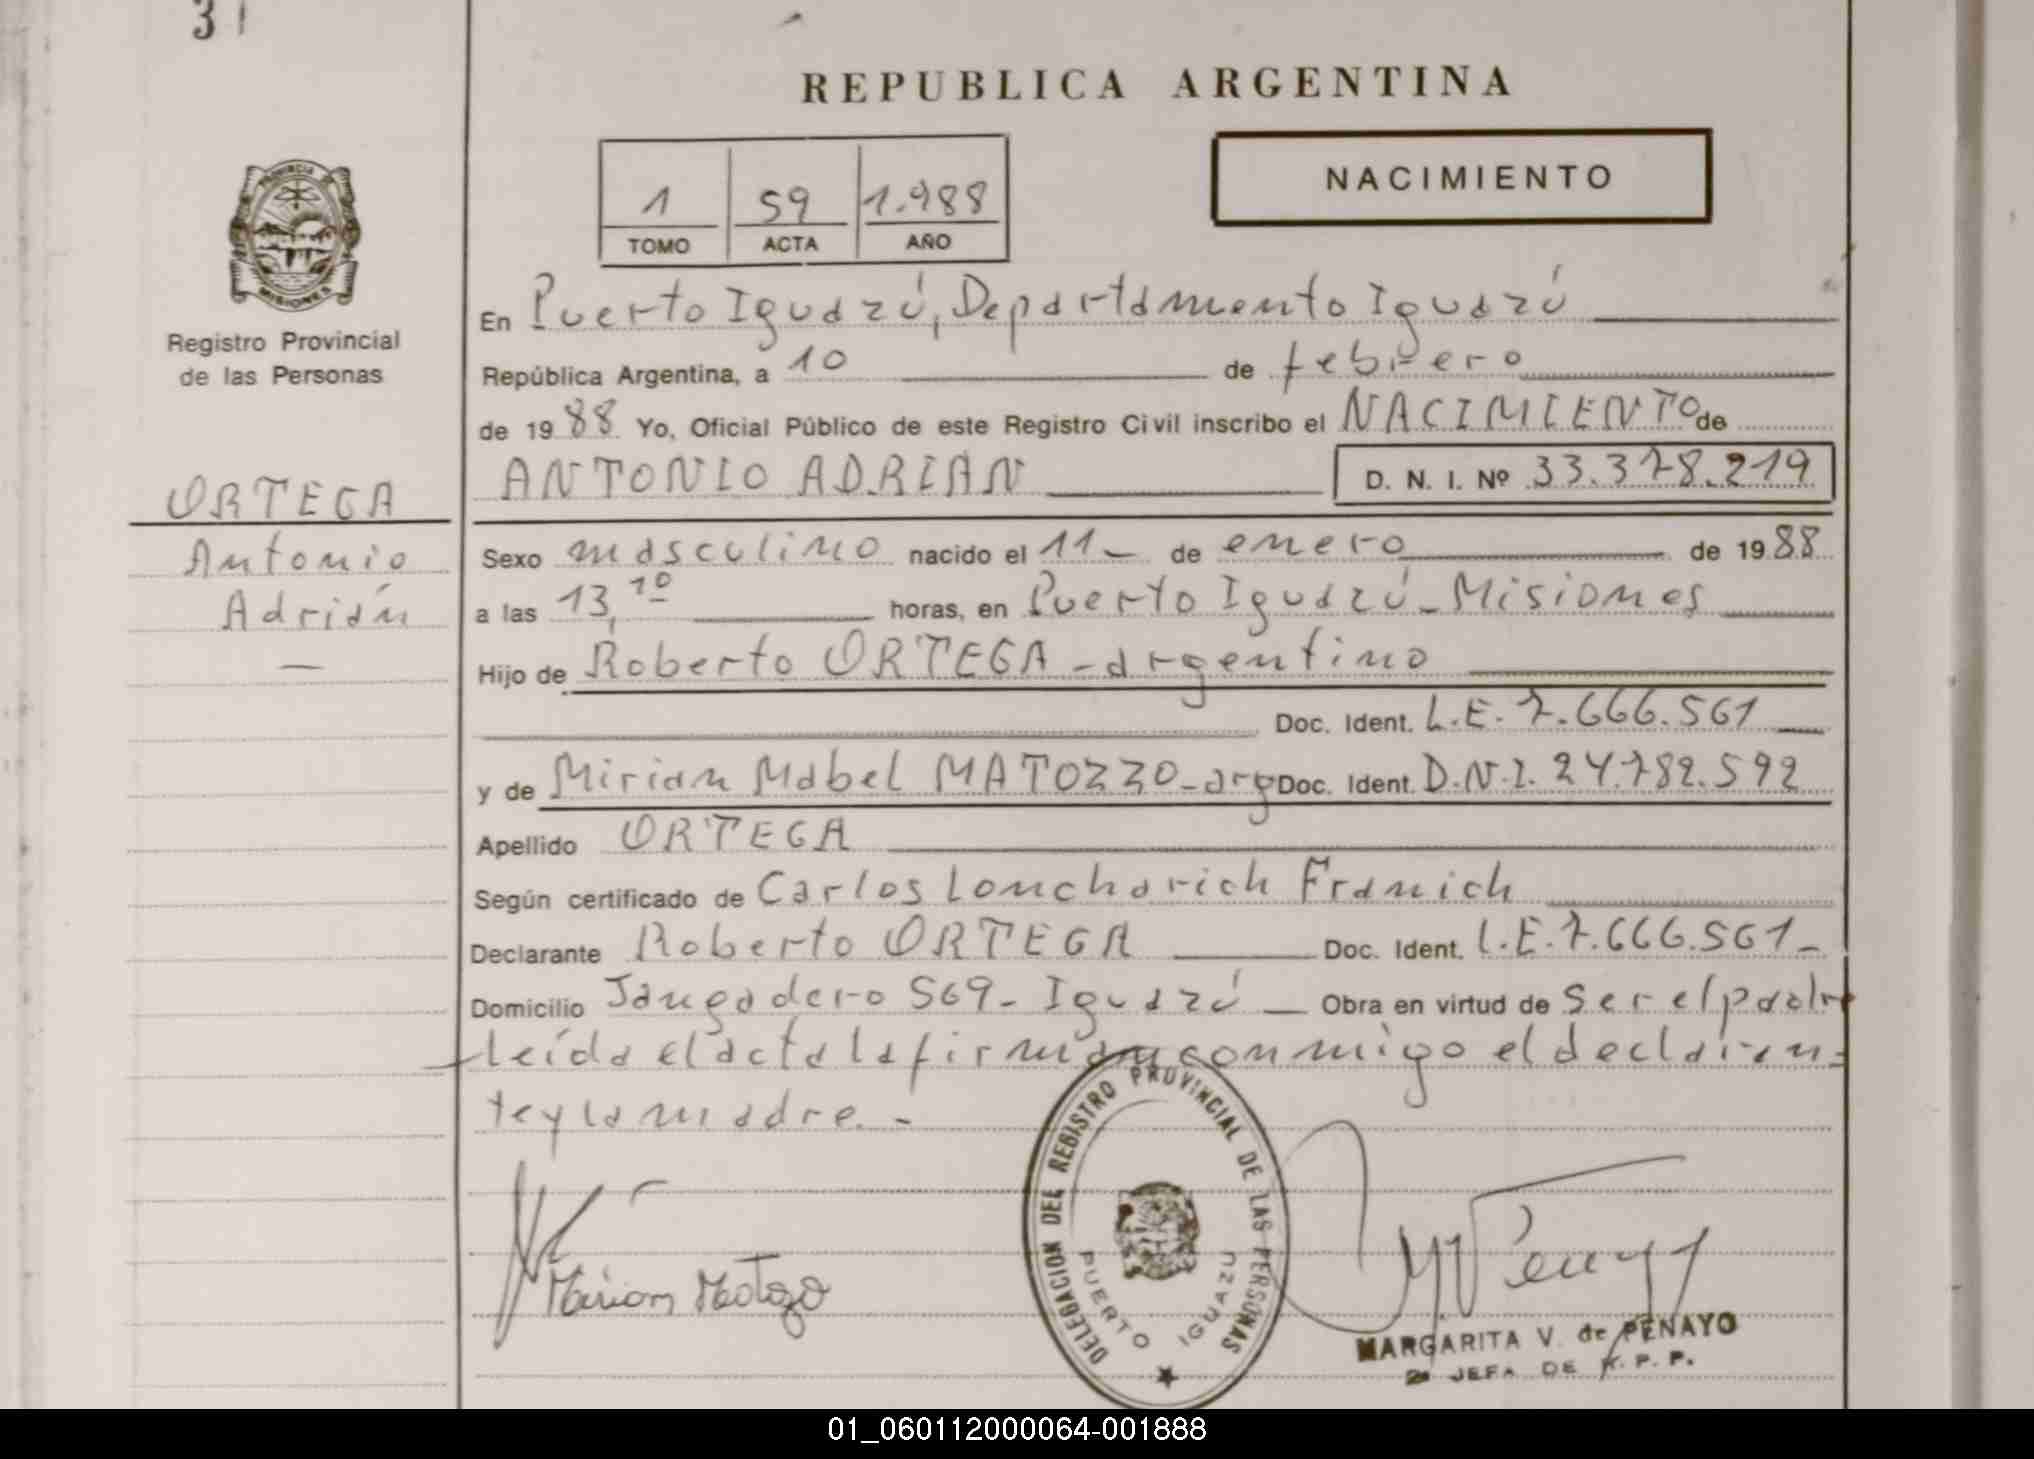 31
REPUBLICA ARGENTINA
PROVINCIA DE
MISIONES
Registro Provincial
de las Personas
1 59 1.988
TOMO ACTA AÑO
NACIMIENTO
En Puerto Iguazú, Departamento Iguazú
República Argentina, a 10 de febrero
de 1988 Yo, Oficial Público de este Registro Civil inscribo el NACIMIENTO de
ANTONIO ADRIAN D. N. I. Nº 33.378.219
ORTEGA
Antonio
Adrián
Sexo masculino nacido el 11_ de enero de 1988
a las 13,10 horas, en Puerto Iguazú_Misiones
Hijo de Roberto ORTEGA - argentino
Doc. Ident. L.E. 7.666.561
y de Mirian Mabel MATOZZO - arg Doc. Ident. D.N.I. 24.782.592
Apellido ORTEGA
Según certificado de Carlos Loncharich Franich
Declarante Roberto ORTEGA Doc. Ident. L.E. 7.666.561_
Domicilio Jangadero 569 - Iguazú Obra en virtud de ser el padre
leída el acta la firman conmigo el declaran=
te y la madre. -
Mirian Matozo
DELEGACION DEL REGISTRO PROVINCIAL DE LAS PERSONAS
PUERTO IGUAZU
MARGARITA V. de PENAYO
2ª JEFA DE R. P. P.
01_060112000064-001888